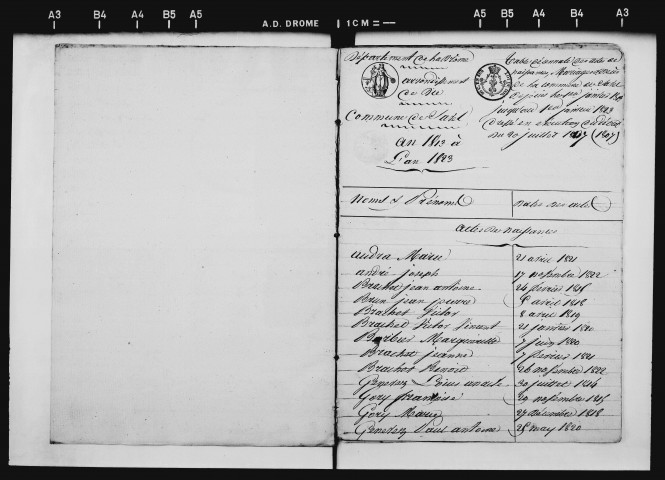 A3 B4 A4 B5 A5 A.D. DROME 1CM A5 B5 A4 B4 A3
Département de la Drome
arrondissement
de Die
Commune de
an 1813 à
L'an 1823
Table décennale des actes de
naissances, Mariages
de la commune de
janvier
jusqu'au janvier 1823
en execution du décret
du 20 juillet 1807 (1807)
Noms & Prénoms
Dates des actes
actes de naissances
audra Marie 21 avril 1821
andré joseph 17 novembre 1822
Brachet jean antoine 24 fevrier 1816
Brun jean 6 avril 1818
Brachet Victor 8 avril 1819
Brachet Victor Vincent 21 janvier 1820
Barbier Marguerite 7 juin 1820
Brachet jeanne 7 fevrier 1821
Brachet 26 novembre 1822
Louis 30 juillet 1814
Gory françoise 29 novembre 1816
Gory Marie 27 décembre 1818
Paul antoine 25 may 1820